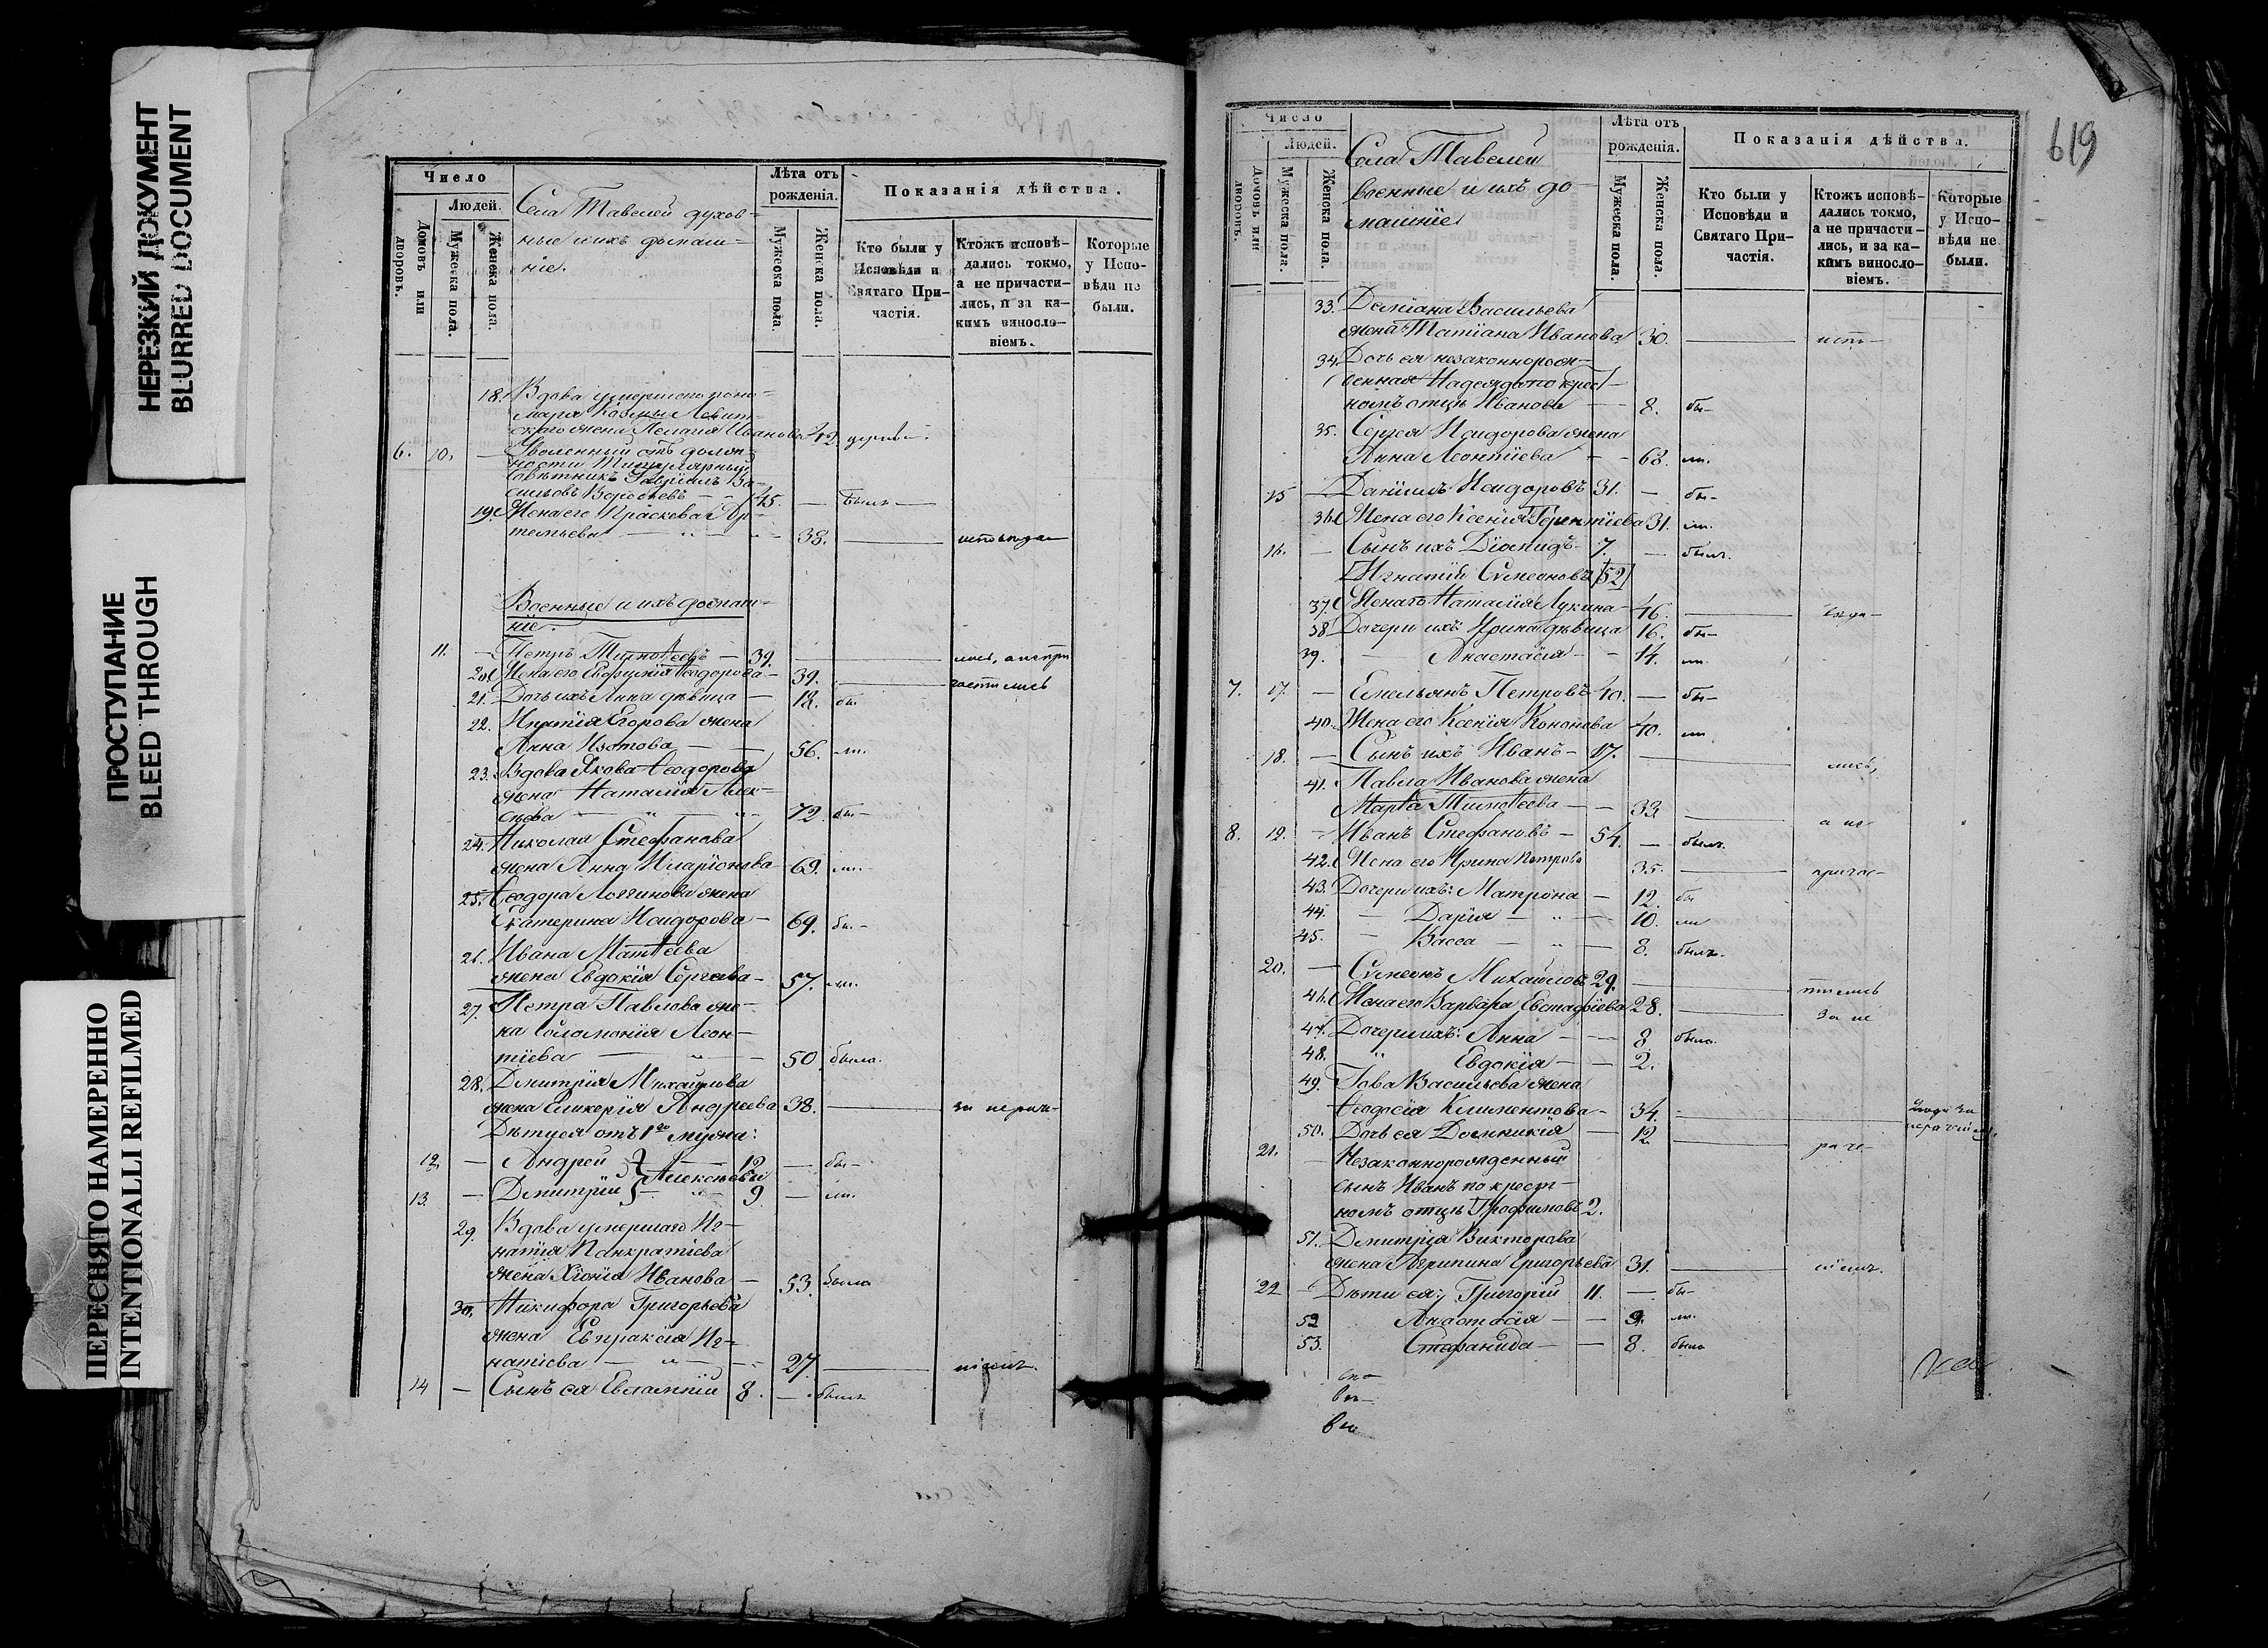 НЕРЕЗКИЙ ДОКУМЕНТ
BLURRED DOCUMENT
ПРОСТУПАНИЕ
BLEED THROUGH
ПЕРЕСНЯТО НАМЕРЕННО
INTENTIONALLI REFILMED
Число
Людей.
Домовъ или дворовъ.
Мужеска пола.
Женска пола.
Села Тавелей духов-
ные и ихъ домаш-
ніе.
Лѣта отъ рожденія.
Мужеска пола.
Женска пола.
Показанія дѣйства.
Кто были у Исповѣди и Святаго Причастія.
Ктожъ исповѣ-
дались токмо,
а не причасти-
лись, и за ка-
кимъ винословіемъ.
Которые у Испо-
вѣди не были.
18. Вдова умершаго поно-
маря Козмы Левит-
скаго жена Пелагія Иванова 42.
6. 10. — Уволенный отъ долж-
ности Титулярный
Совѣтникъ Гавріилъ Ва-
сильевъ Воробьевъ 45. — былъ
19. Жена его Праскева Ар-
темьева 38.
Военные и ихъ домаш-
ніе.
11. — Петръ Тимоѳеевъ — 39.
20. Жена его Евфимія Ѳеодорова 39.
21. Дочь ихъ Анна дѣвица — 18. бы
22. Игнатія Егорова жена
Анна Изотова — 56. ли.
23. Вдова Якова Ѳеодорова
жена Наталія Алек-
сѣева 72. бы-
24. Николая Стефанова
жена Анна Иларіонова 69. ли.
25. Ѳеодора Логгинова жена
Екатерина Исидорова 69. бы-
26. Ивана Матѳеева
жена Евдокія Сергеева 57. ли.
27. Петра Павлова же-
на Соломонія Леон-
тіева 50. была.
28. Димитрія Михайлова
жена Гликерія Андреева 38.
Дѣти ея отъ 1го мужа:
12. — Андрей 12 — бы-
Алексѣевы
13. — Димитрій 9. — ли.
29. Вдова умершаго Иг-
натія Панкратіева
жена Хіонія Иванова — 53. была
30. Никифора Григорьева
жена Евпраксія Иг-
натіева 27.
14 — Сынъ ея Евлампій 8. — былъ
619
Число
Людей.
Домовъ или дворовъ.
Мужеска пола.
Женска пола.
Села Тавелей
военные и ихъ до-
машніе
Лѣта отъ рожденія.
Мужеска пола.
Женска пола.
Показанія дѣйства.
Кто были у Исповѣди и Святаго Причастія.
Ктожъ исповѣ-
дались токмо,
а не причасти-
лись, и за ка-
кимъ винословіемъ.
Которые у Испо-
вѣди не были.
33. Даміана Васильева
жена Татіана Иванова 30.
34. Дочь ея незаконнорож-
денная Надежда по крест-
номъ отцѣ Иванова 8. бы-
35. Сергея Исидорова жена
Анна Леонтіева — 68. ли.
15 — Даніилъ Исидоровъ 31. — бы-
36. Жена его Ксенія Терентіева 31. ли.
16. — Сынъ ихъ Діомидъ 7. — былъ.
[Игнатій Симеоновъ [52]
37. Жена его Наталія Лукина 46.
38. Дочери ихъ: Ирина дѣвица 16. бы-
39. — Анастасія — 14. ли.
7. 17. — Емельянъ Петровъ 40. — бы-
40. Жена его Ксенія Кононова 40. ли
18. — Сынъ ихъ Иванъ — 17. лись,
41. Павла Иванова жена
Марѳа Тимоѳеева — 33 а не
8. 19. — Иванъ Стефановъ — 54. — былъ.
42. Жена его Ирина Петрова 35. причас-
43. Дочери ихъ: Матрона — 12. бы
44. — Дарія — 10. ли
45. — Васса — 8. была.
20. — Симеонъ Михайловъ 29. тились
46. Жена его Варвара Евстафіева 28. за не
47. Дочери ихъ: Анна — 8 была.
48. Евдокія — 2.
49. Іова Васильева жена
Ѳеодосія Климентова 34.
50. Дочь ея Домникія — 12 раче-
21. — Незаконнорожденный
сынъ Иванъ по крест-
номъ отцѣ Трофимовъ 2.
51. Димитрія Викторова
жена Агрипина Григорьева 31. ніемъ.
22 — Дѣти ея: Григорій 11. — бы-
52 Анастасія — 9. ли.
53. Стефанида — 8. была